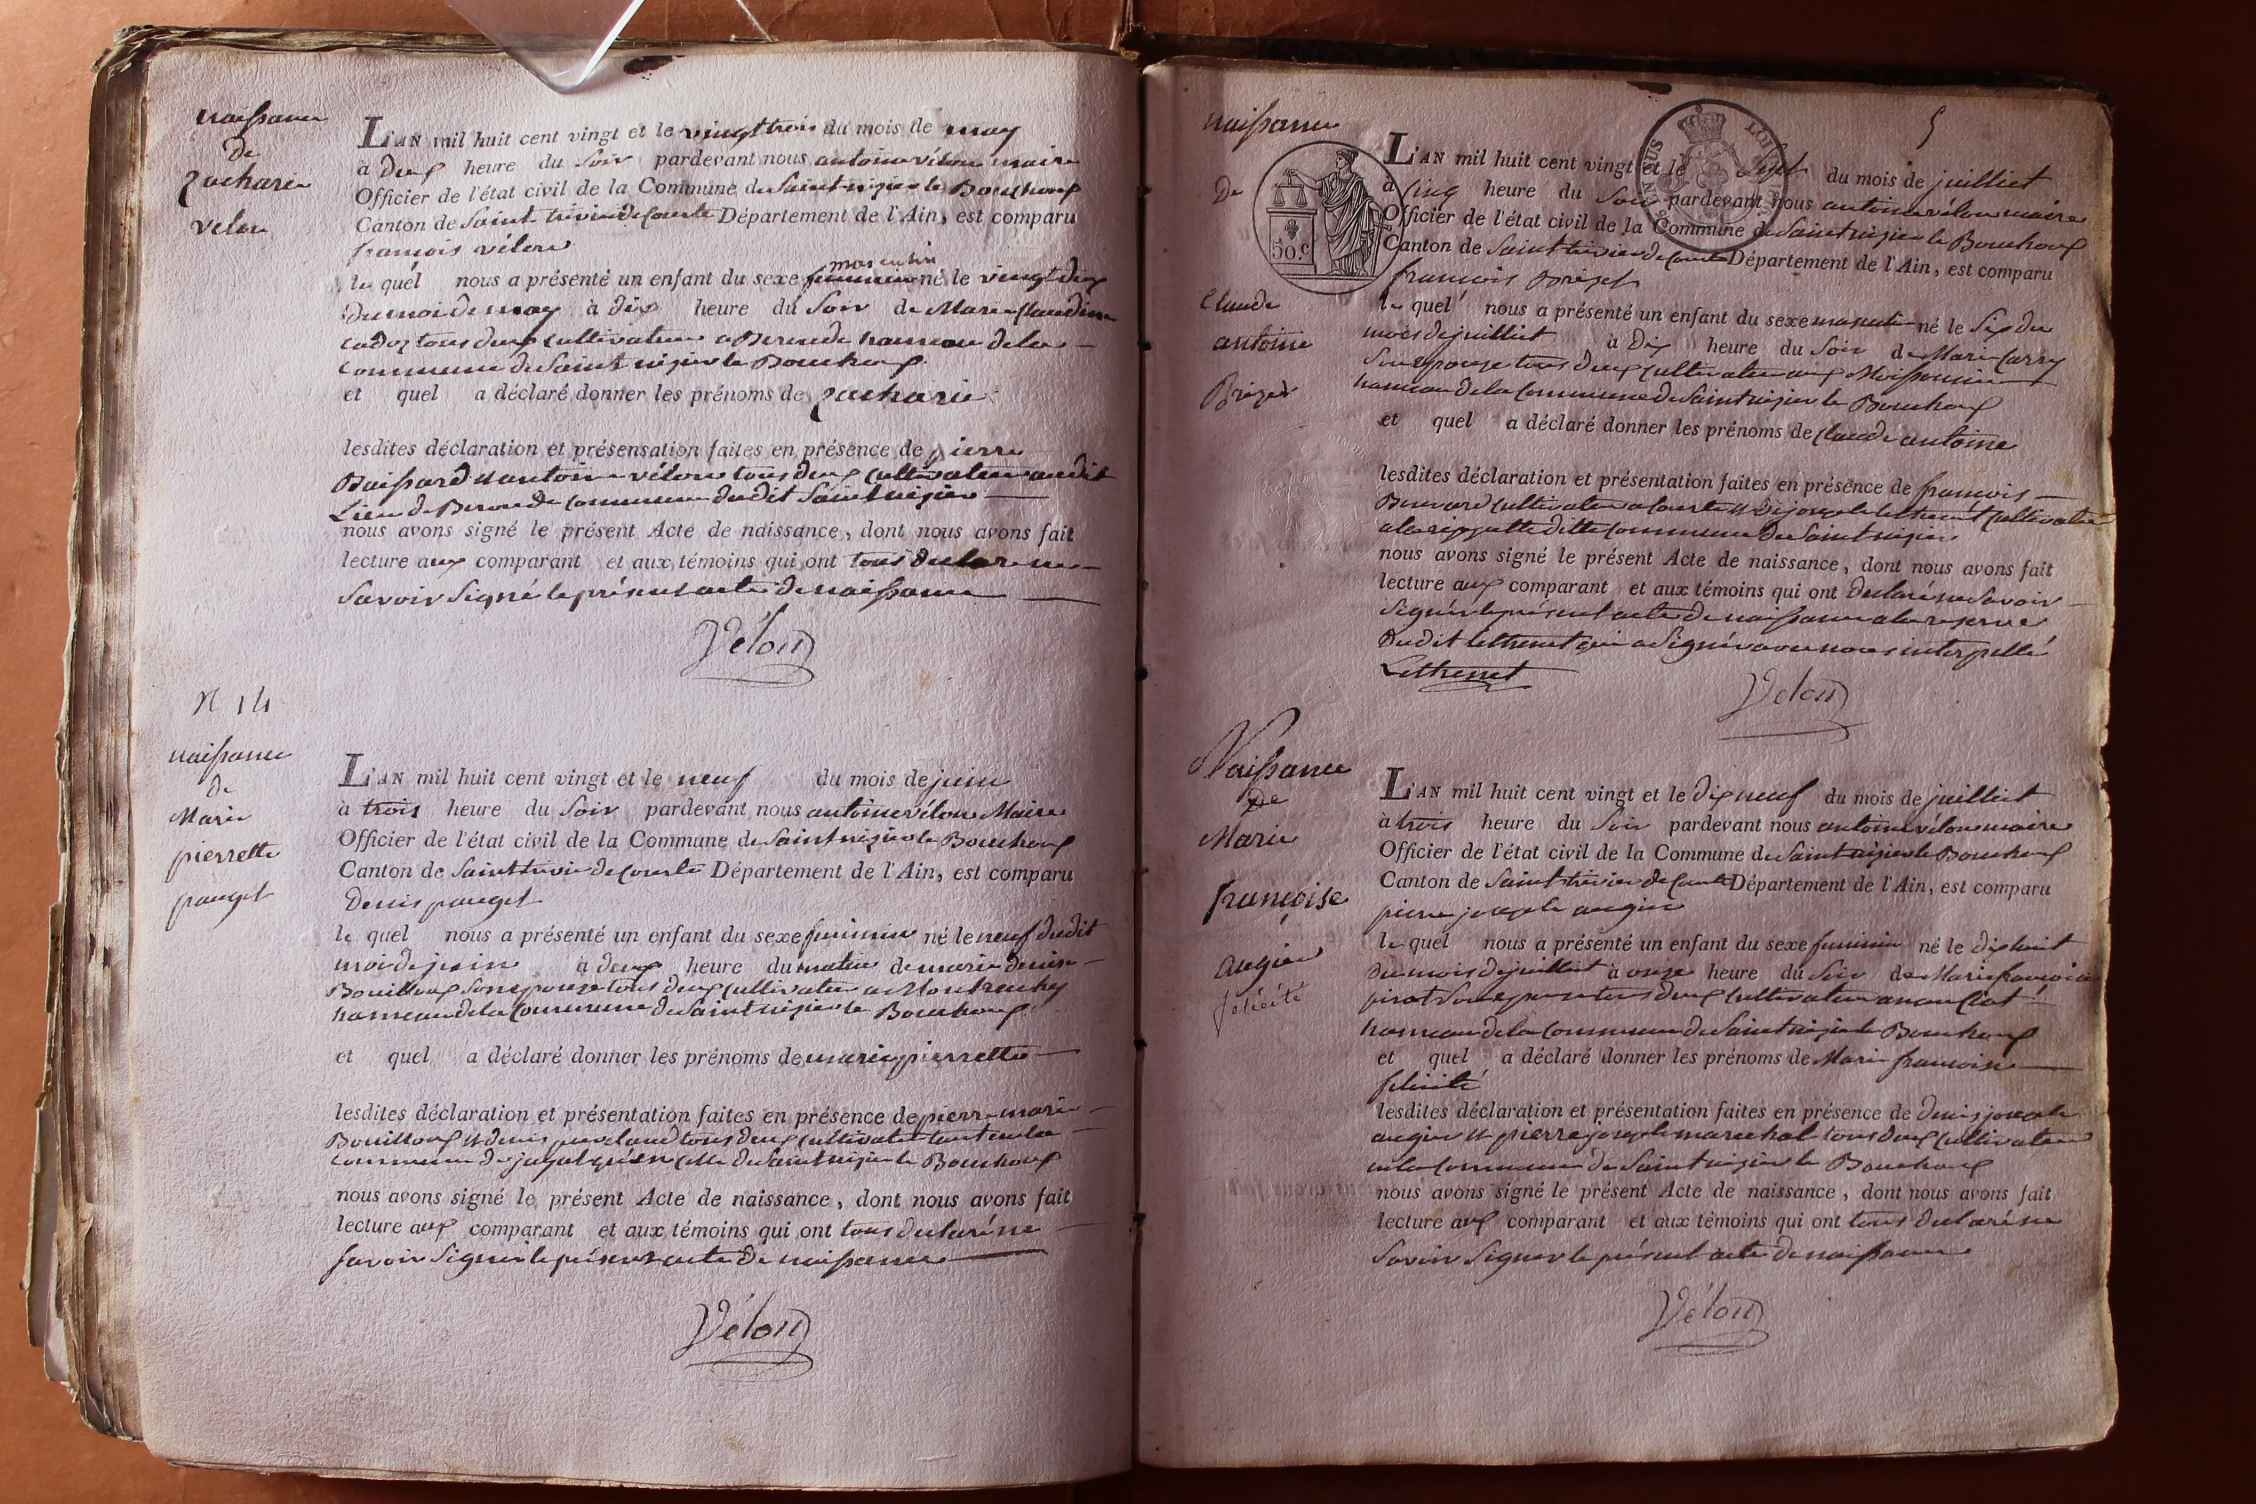 naissance
de
zacharie
velon
L'AN mil huit cent vingt et le vingt trois du mois de may
à deux heure du soir pardevant nous antoine vélon maire
Officier de l'état civil de la Commune de Saint nizier le Bouchoux
Canton de Saint trivier de Courte Département de l'Ain, est comparu
françois vélon
le quel nous a présenté un enfant du sexe masculin né le vingt deux
du moi de may à dix heure du soir de Marie Claudine
tous deux cultivateur a hameau de la
commune de Saint nizier le Bouchoux
et quel a déclaré donner les prénoms de zacharie
lesdites déclaration et présensation faites en présence de pierre
et antoine vélon tous deux cultivateur audit
Lieu de commune dudit Saint nizier
nous avons signé le présent Acte de naissance, dont nous avons fait
lecture aux comparant et aux témoins qui ont tous declare ne
savoir signé le présent acte de naissance
Vélon
N 14
naissance
de
Marie
pierrette
pauget
L'AN mil huit cent vingt et le neuf du mois de juin
à trois heure du soir pardevant nous antoine vélon Maire
Officier de l'état civil de la Commune de Saint nizier le Bouchoux
Canton de Saint trivier de Courte Département de l'Ain, est comparu
Denis pauget
le quel nous a présenté un enfant du sexe feminin né le neuf dudit
moi de juin à deux heure du matin de marie denise
Bouilloux son epouze tous deux cultivateur a
hameau de la Commune de Saint nizier le Bouchoux
et quel a déclaré donner les prénoms de marie pierrette
lesdites déclaration et présentation faites en présence de pierre marie
Bouilloux et denis tous deux cultivateur tant en la
commune de qu'en celle de Saint nizier le Bouchoux
nous avons signé le présent Acte de naissance, dont nous avons fait
lecture aux comparant et aux témoins qui ont tous declaré ne
savoir signer le présent acte de naissance
Vélon
5
naissance
De
50.c
Claude
antoine
Brezet
L'AN mil huit cent vingt et le Sept du mois de juilliet
à Cinq heure du Soir pardevant nous antoine vélon maire
Officier de l'état civil de la Commune de Saint nizier le Bouchoux
Canton de Saint trivier de Courte Département de l'Ain, est comparu
francois Brezet
le quel nous a présenté un enfant du sexe masculin né le Six du
mois de juilliet à Dix heure du Soir de Marie Carry
Son epouze tous deux cultivateur aux
hameau de la Commune de Saint nizier le Bouchoux
et quel a déclaré donner les prénoms de Claude antoine
lesdites déclaration et présentation faites en présence de françois
cultivateur a Courte et Lethenet Cultivateur
ditte Commune de Saint nizier
nous avons signé le présent Acte de naissance, dont nous avons fait
lecture aux comparant et aux témoins qui ont declaré ne Savoir
Signér le présent acte de naissance a la reserve
dudit Lethenet qui a Signé avec nous interpellé
Lethenet
Vélon
Naissance
De
Marie
françoise
augier
félicité
L'AN mil huit cent vingt et le dix neuf du mois de juilliet
à trois heure du Soir pardevant nous antoine vélon maire
Officier de l'état civil de la Commune de Saint nizier le Bouchoux
Canton de Saint trivier de Courte Département de l'Ain, est comparu
pierre joseph augier
le quel nous a présenté un enfant du sexe feminin né le dixhuit
du mois de juilliet à onze heure du Soir de Marie francoise
pirat Son epouse tous deux Cultivateur
hameau de la Commune de Saint nizier le Bouchoux
et quel a déclaré donner les prénoms de Marie francoise
felicité
lesdites déclaration et présentation faites en présence de denis joseph
augier et pierre joseph marechal tous deux Cultivateur
en la Commune de Saint nizier le Bouchoux
nous avons signé le présent Acte de naissance, dont nous avons fait
lecture aux comparant et aux témoins qui ont tous declaré ne
Savoir Signer le présent acte de naissance
Vélon